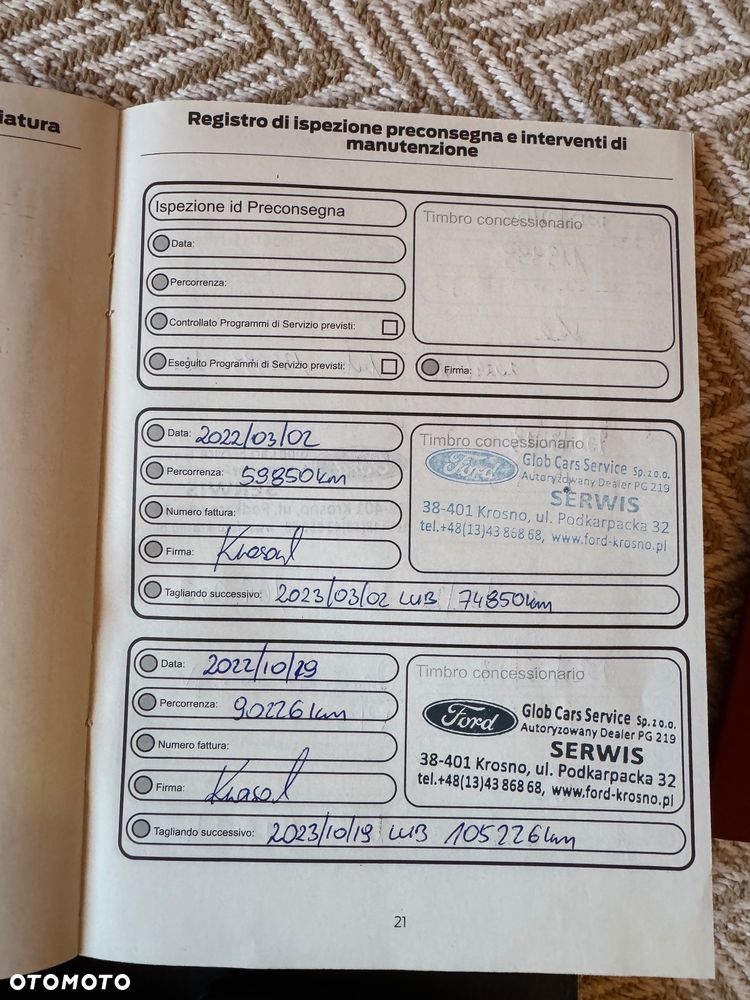 iatura
Registro di ispezione preconsegna e interventi di
manutenzione
Ispezione id Preconsegna
Timbro concessionario
Data:
Percorrenza:
Controllato Programmi di Servizio previsti:
Eseguito Programmi di Servizio previsti:
Firma:
Data: 2022/03/02
Timbro concessionario
Ford
Glob Cars Service Sp. z o.o.
Autoryzowany Dealer PG 219
SERWIS
38-401 Krosno, ul. Podkarpacka 32
tel.+48(13)43 868 68, www.ford-krosno.pl
Percorrenza: 59850km
Numero fattura:
Firma:
Tagliando successivo: 2023/03/02 LUB 74850km
Data: 2022/10/19
Timbro concessionario
Ford
Glob Cars Service Sp. z o.o.
Autoryzowany Dealer PG 219
SERWIS
38-401 Krosno, ul. Podkarpacka 32
tel.+48(13)43 868 68, www.ford-krosno.pl
Percorrenza: 90226km
Numero fattura:
Firma:
Tagliando successivo: 2023/10/19 LUB 105226km
21
OTOMOTO